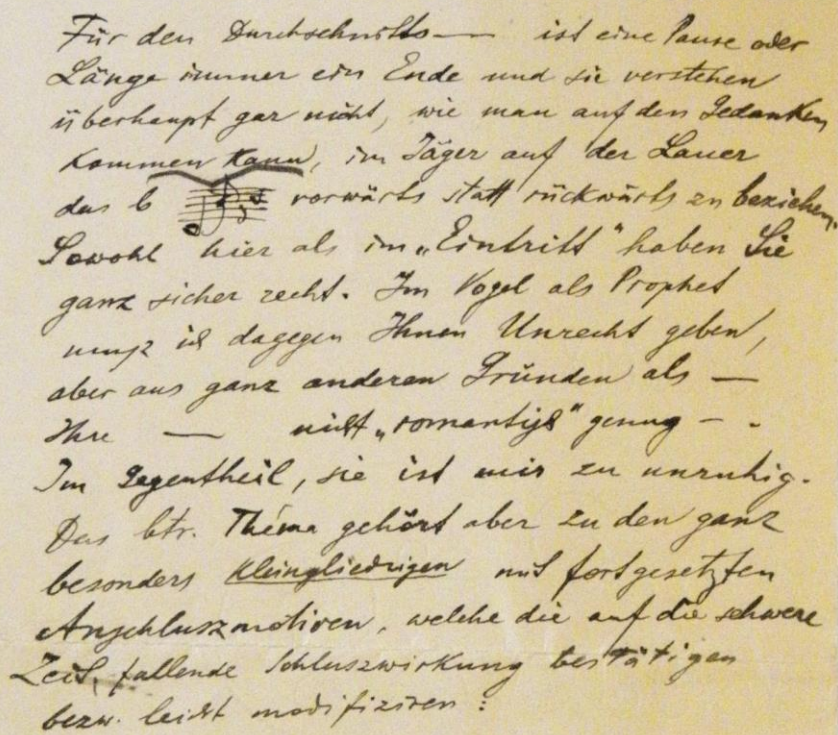 Für den Durchschnitts— ist eine Pause oder
Länge immer ein Ende und sie verstehen
überhaupt gar nicht, wie man auf den Gedanken
kommen kann, im Jäger auf der Lauer
das b vorwärts statt rückwärts zu beziehen.
Sowohl hier als im „Eintritt" haben Sie
ganz sicher recht. Im Vogel als Prophet
musz ich dagegen Ihnen Unrecht geben,
aber aus ganz anderen Gründen als —
Ihre — nicht „romantisch" genug — .
Im Gegentheil, sie ist mir zu unruhig.
Das btr. Thema gehört aber zu den ganz
besonders kleingliedrigen mit fortgesetzten
Anschluszmotiven, welche die auf die schwere
Zeit fallende Schluszwirkung bestätigen
bezw. leicht modifiziren :